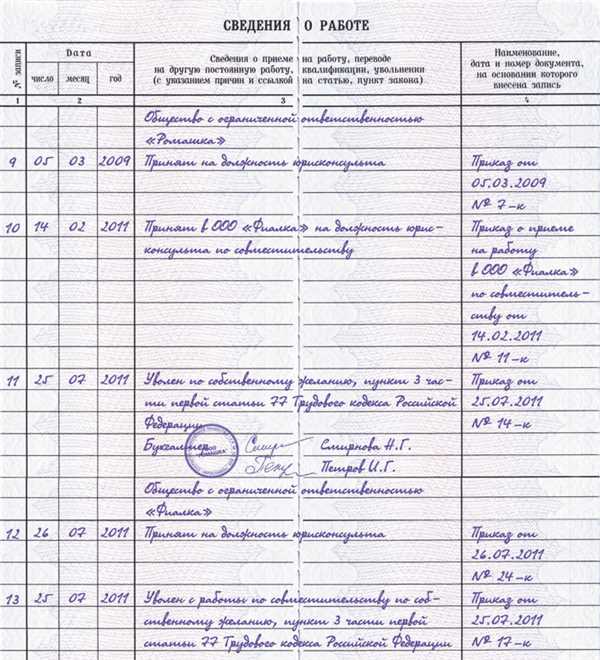 СВЕДЕНИЯ О РАБОТЕ
№ записи
Дата
Сведения о приеме на работу, переводе
на другую постоянную работу, квалификации, увольнении
(с указанием причин и ссылкой на статью, пункт закона)
Наименование,
дата и номер документа,
на основании которого
внесена запись
число месяц год
1 2 3 4
Общество с ограниченной ответственностью
«Ромашка»
9 05 03 2009 Принят на должность юрисконсульта Приказ от
05.03.2009
№ 7-к
10 14 02 2011 Принят в ООО «Фиалка» на должность юрис- Приказ о приеме
консульта по совместительству на работу
в ООО «Фиалка»
по совместитель-
ству от
14.02.2011
№ 11-к
11 25 07 2011 Уволен по собственному желанию, пункт 3 час- Приказ от
ти первой статьи 77 Трудового кодекса Российской 25.07.2011
Федерации № 14-к
Бухгалтер Смирнова Н.Г.
Петров И.Г.
Общество с ограниченной ответственностью
«Фиалка»
12 26 07 2011 Принят на должность юрисконсульта Приказ от
26.07.2011
№ 24-к
13 25 07 2011 Уволен с работы по совместительству по соб- Приказ от
ственному желанию, пункт 3 части первой 25.07.2011
статьи 77 Трудового кодекса Российской Федерации № 17-к